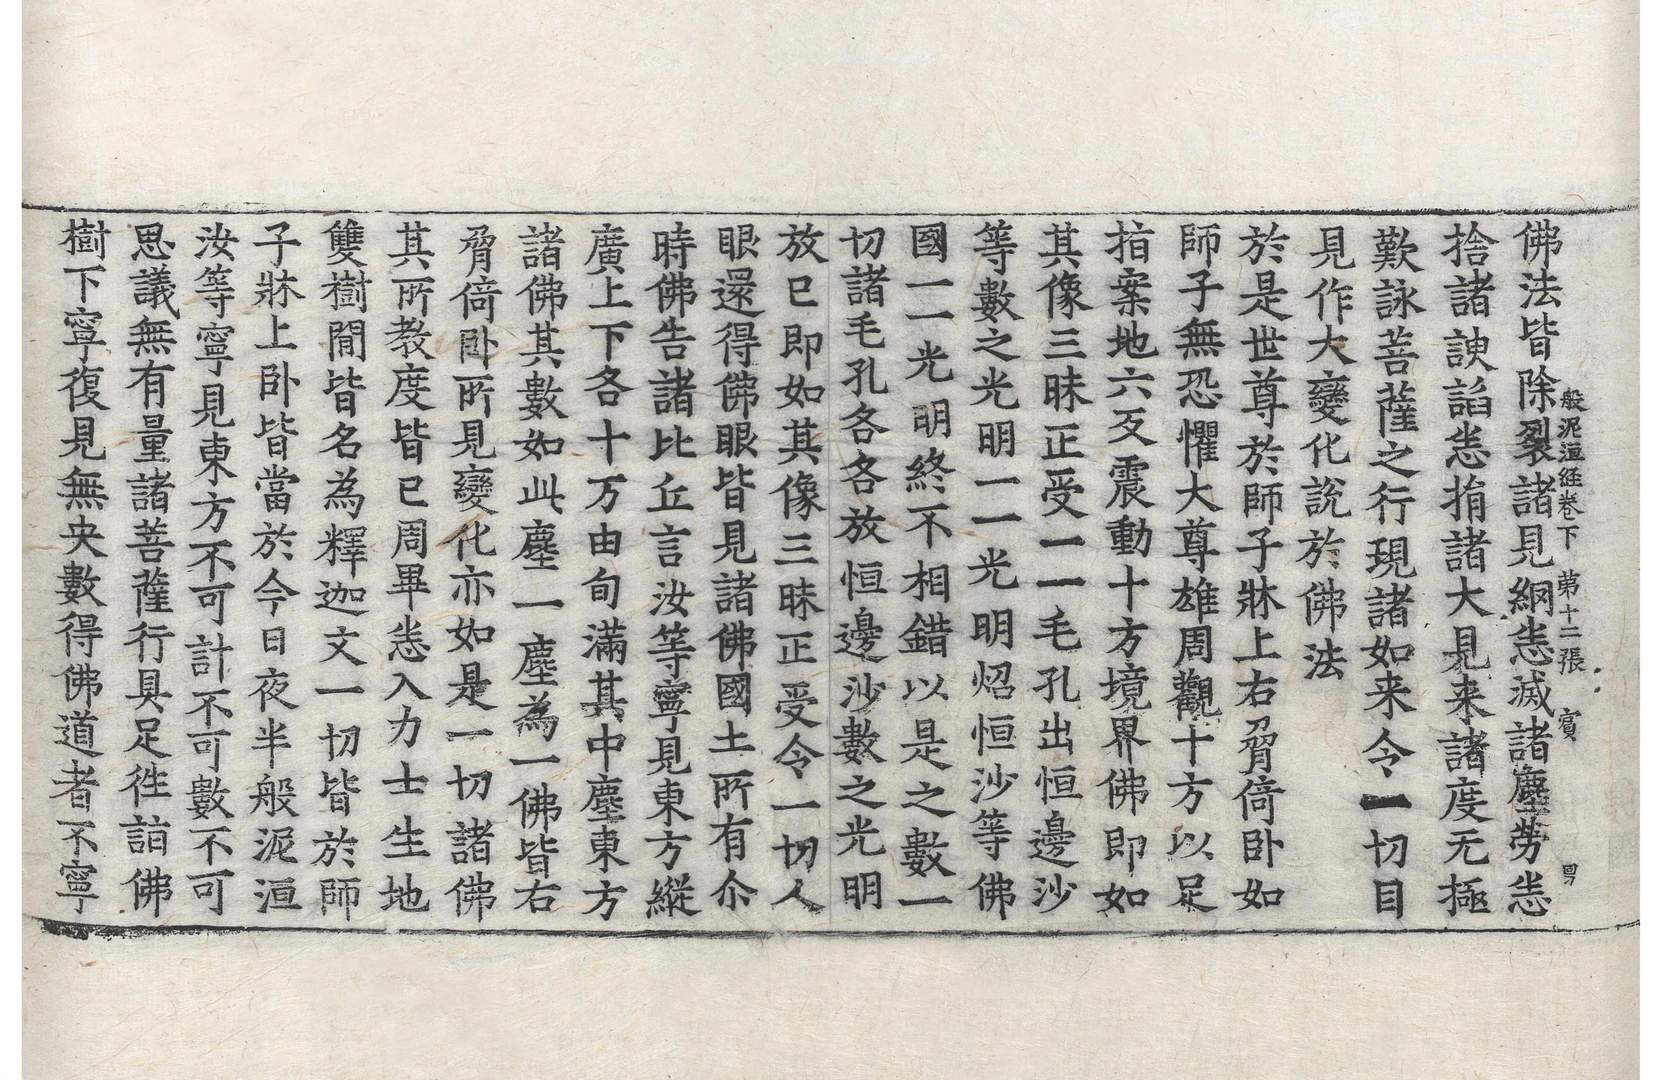 佛法皆除裂諸見網恚滅諸塵勞恚
般泥洹經卷下　第十二張　賓
捨諸諛諂恚捐諸大見来諸度无極
歎詠菩薩之行現諸如来令一切目
見作大變化說於佛法
於是世尊於師子牀上右脅倚卧如
師子無恐懼大尊雄周觀十方以足
指案地六反震動十方境界佛即如
其像三昧正受一一毛孔出恒邊沙
等數之光明一一光明炤恒沙等佛
國一一光明終不相錯以是之數一
切諸毛孔各各放恒邊沙數之光明
放已即如其像三昧正受令一切人
眼還得佛眼皆見諸佛國土所有尒
時佛告諸比丘言汝等寧見東方縱
廣上下各十万由旬滿其中塵東方
諸佛其數如此塵一塵為一佛皆右
脅倚卧所見變化亦如是一切諸佛
其所教度皆已周畢恚入力士生地
雙樹閒皆名為釋迦文一切皆於師
子牀上卧皆當於今日夜半般泥洹
汝等寧見東方不可計不可數不可
思議無有量諸菩薩行具足徃詣佛
樹下寧復見無央數得佛道者不寧